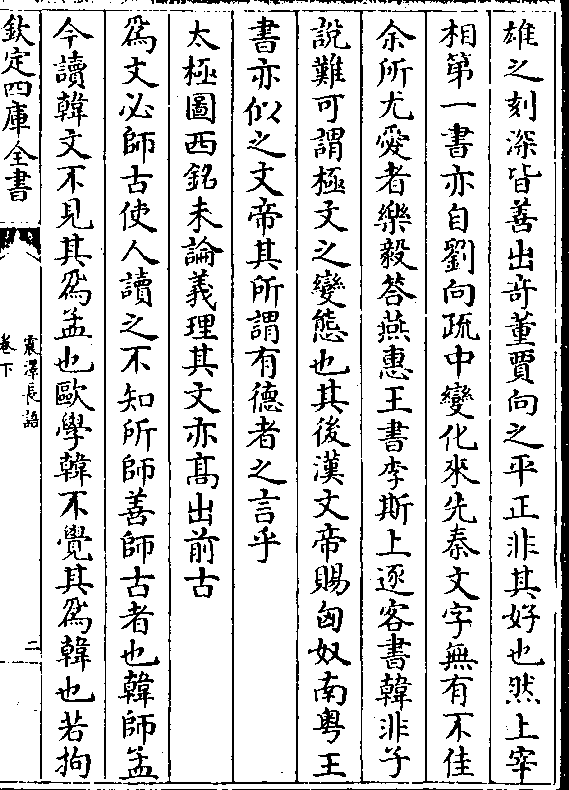 雄之刻深皆善出奇董賈向之平正非其好也然上宰
相第一書亦自劉向疏中變化來先秦文字無有不佳
余所尤愛者樂毅答燕惠王書李斯上逐客書韓非子
說難可謂極文之變態也其後漢文帝賜匈奴南粤王
書亦似之文帝其所謂有德者之言乎
太極圖西銘未論義理其文亦髙出前古
爲文必師古使人讀之不知所師善師古者也韓師孟
今讀韓文不見其爲孟也歐學韓不覺其爲韓也若拘
欽定四庫全書
震澤長語
卷下
二